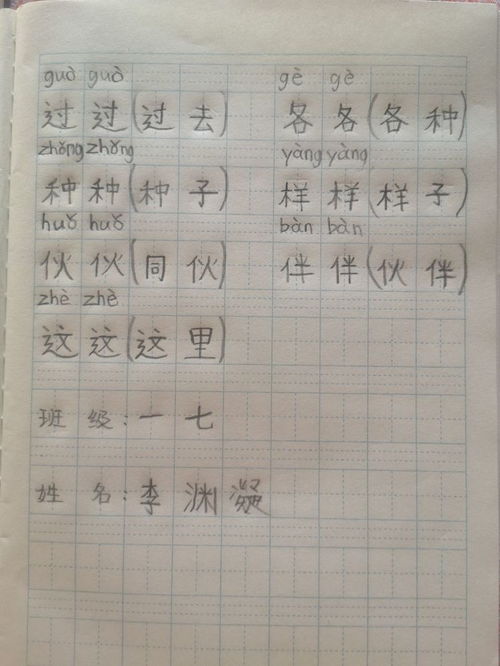 guò guò gè gè
过 过 (过 去) 各 各 (各 种)
zhǒng zhǒng yàng yàng
种 种 (种 子) 样 样 (样 子)
huǒ huǒ bàn bàn
伙 伙 (同 伙) 伴 伴 (伙 伴)
zhè zhè
这 这 (这 里)
班 级: 一 七
姓 名: 李 渊